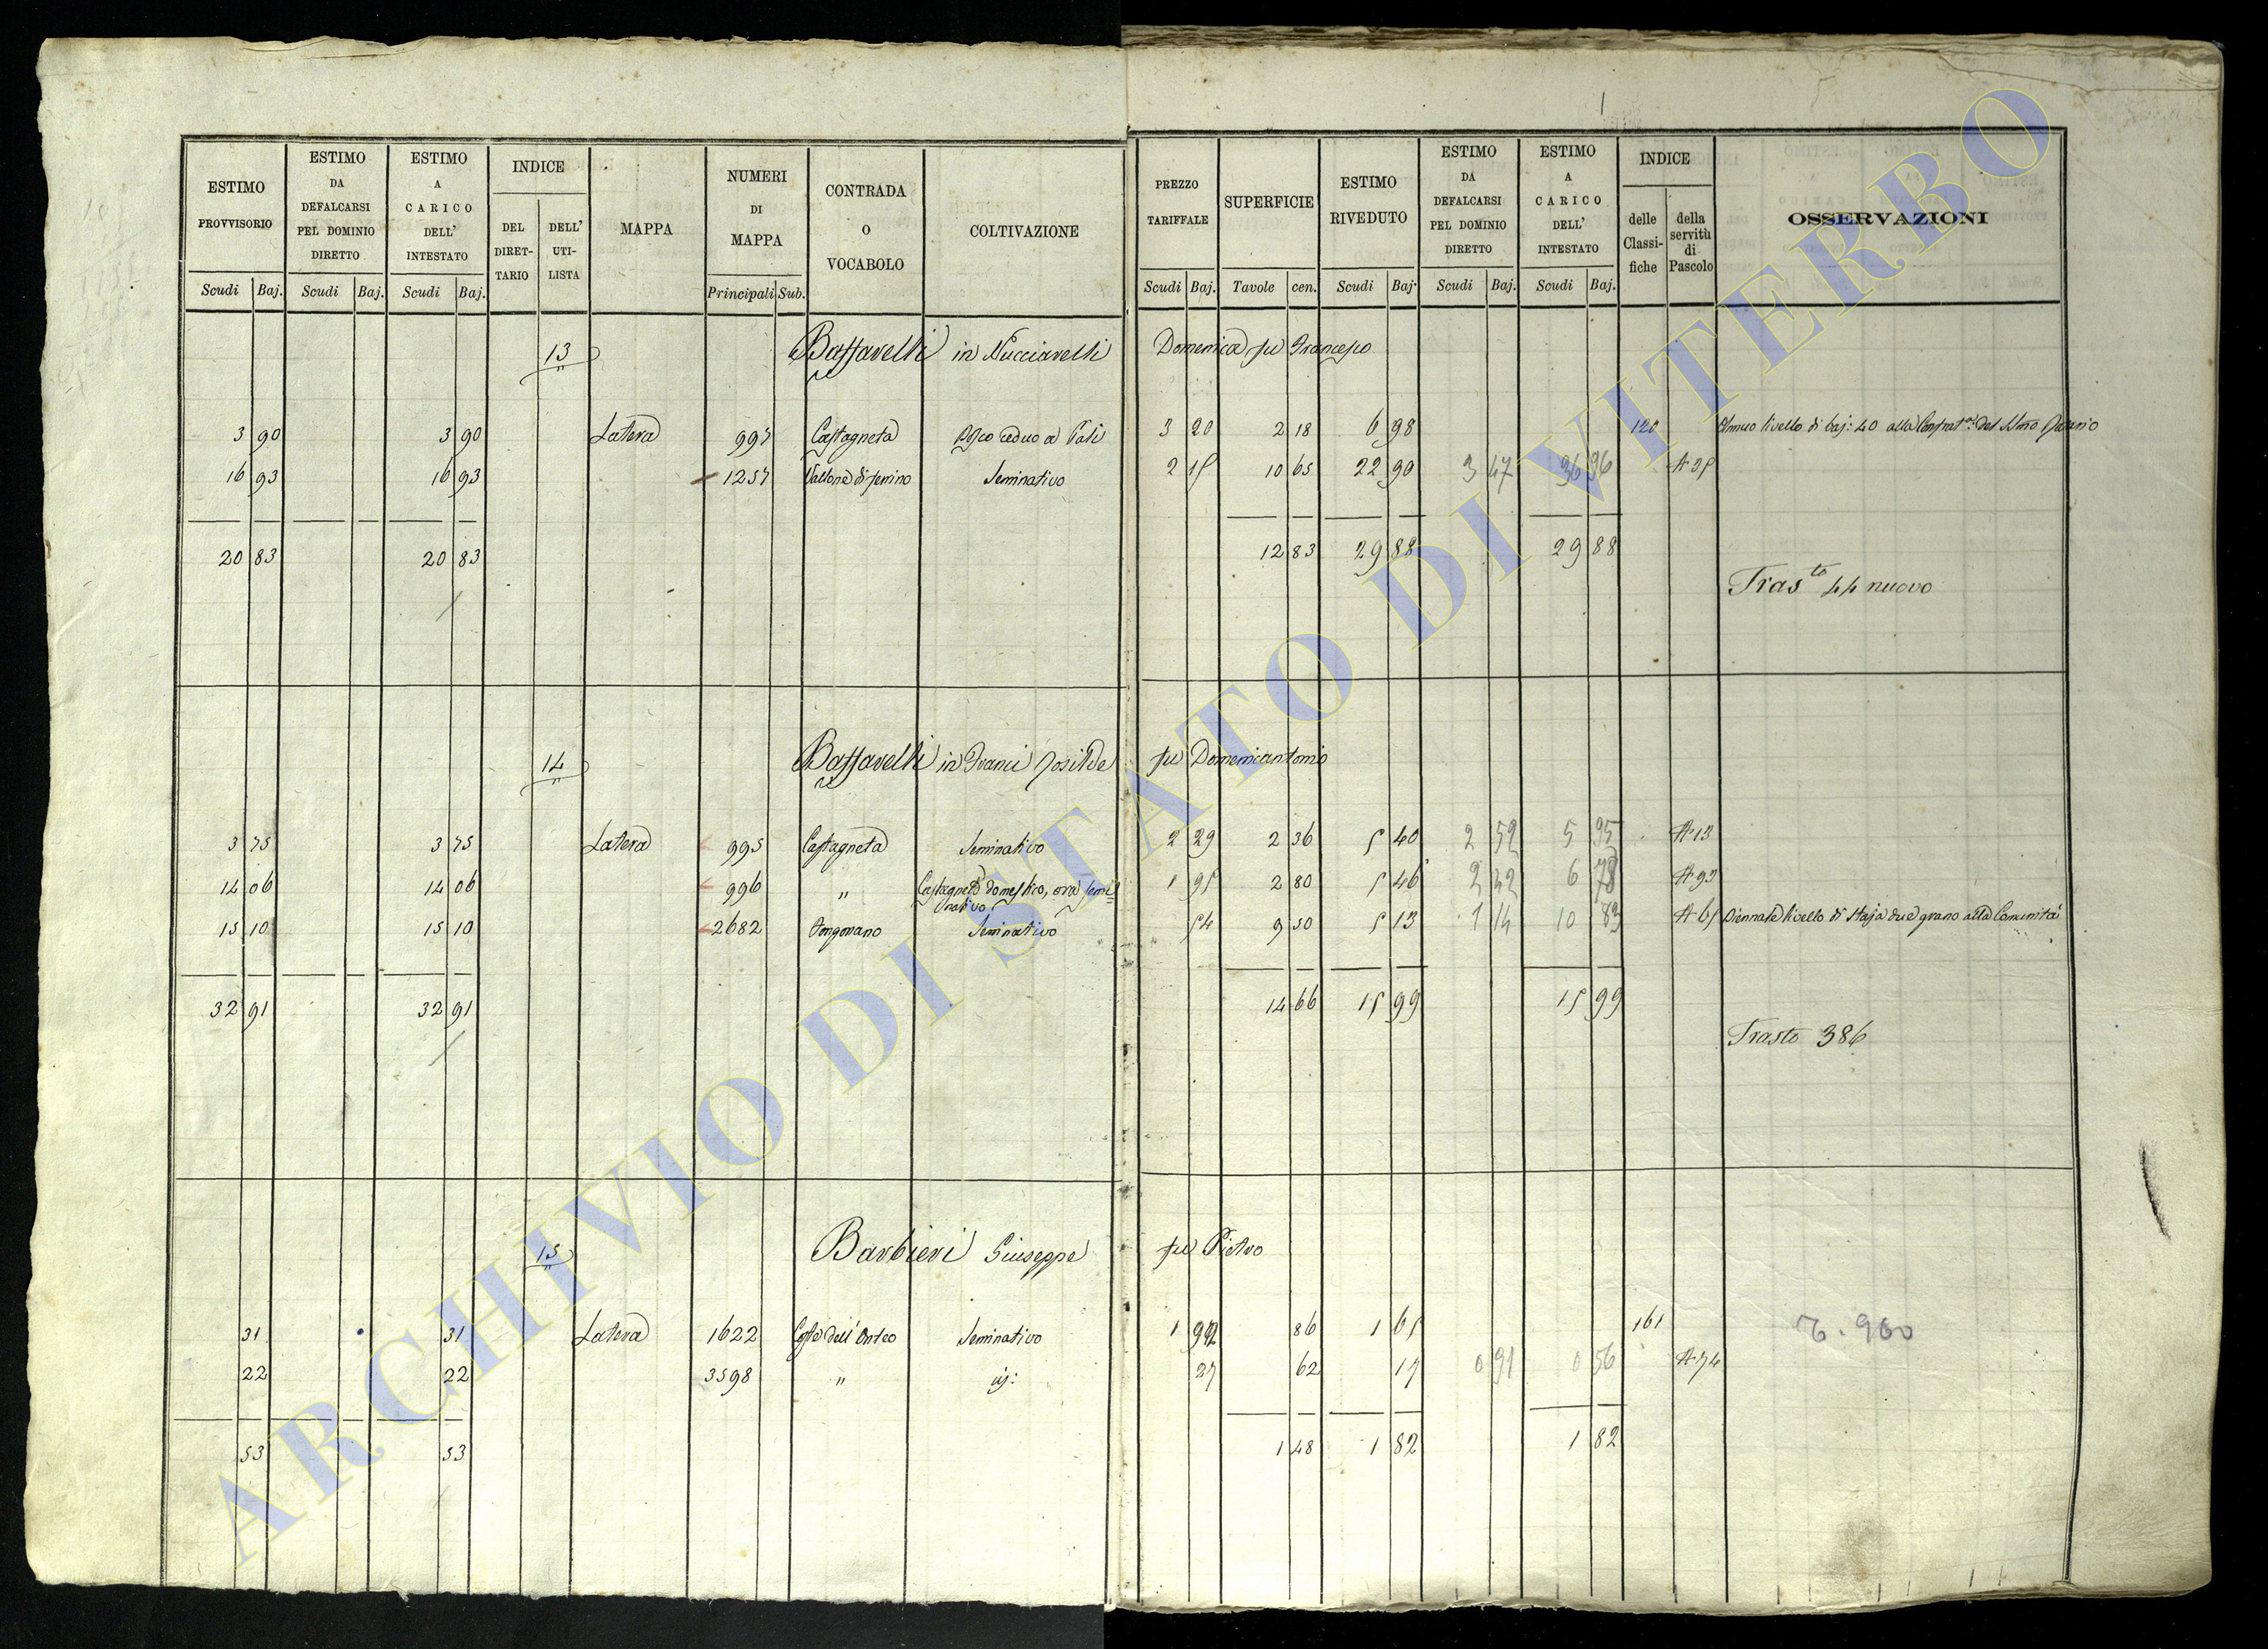 ESTIMO PROVVISORIO
ESTIMO DA DEFALCARSI PEL DOMINIO DIRETTO
ESTIMO A CARICO DELL' INTESTATO
INDICE
DEL DIRET- TARIO
DELL' UTI- LISTA
MAPPA
NUMERI DI MAPPA
CONTRADA O VOCABOLO
COLTIVAZIONE
PREZZO TARIFFALE
SUPERFICIE
ESTIMO RIVEDUTO
ESTIMO DA DEFALCARSI PEL DOMINIO DIRETTO
ESTIMO A CARICO DELL' INTESTATO
INDICE
delle Classi- fiche
della servitù di Pascolo
OSSERVAZIONI
Scudi Baj. Scudi Baj. Scudi Baj. Principali Sub. Scudi Baj. Tavole cen. Scudi Baj. Scudi Baj. Scudi Baj.
13 Baffarelli in Nucciarelli Domenica fu Francesco
3 90 3 90 Latera 997 Castagneta Bosco ceduo a Pali 3 20 2 18 6 98 120 Annuo livello di baj: 40 alla
16 93 16 93 1257 Vallone di Seminativo 2 15 10 65 22 90 3 47 36 36 A 35
20 83 20 83 12 83 29 88 29 88
Tras.to 44 nuovo
14 Baffarelli in Franci fu Domenicantonio
3 75 3 75 Latera 995 Castagneta Seminativo 2 29 2 36 5 40 2 52 5 95 A 13
14 06 14 06 996 " Castagneto domestico, ora semi= 1 95 2 80 5 46 2 42 6 78 A 93
nativo
15 10 15 10 2682 Seminativo 54 9 50 5 13 1 14 10 83 A 65 Biennale livello di Staja due grano alla Comunità
32 91 32 91 14 66 15 99 15 99
Trasto 386
15 Barbieri Giuseppe fu Pietro
31 31 Latera 1622 Seminativo 1 92 86 1 65 161
22 22 3598 " 27 62 17 0 91 0 56 A 74
53 53 1 48 1 82 1 82
900
ARCHIVIO DI STATO DI VITERBO